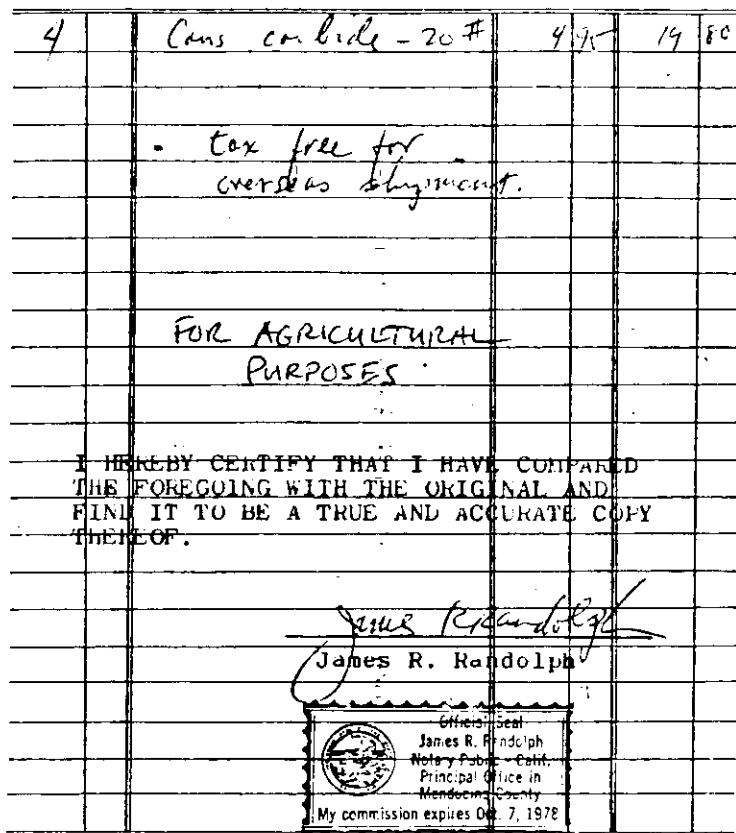 4 Cans carbide - 20# 4 95 19 80
- tax free for
overseas shipment.
FOR AGRICULTURAL
PURPOSES
I HEREBY CERTIFY THAT I HAVE COMPARED
THE FOREGOING WITH THE ORIGINAL AND
FIND IT TO BE A TRUE AND ACCURATE COPY
THEREOF.
James R Randolph
James R. Randolph
Official Seal
James R. Randolph
Notary Public - Calif.
Principal Office in
Mendocino County
My commission expires Oct. 7, 1978